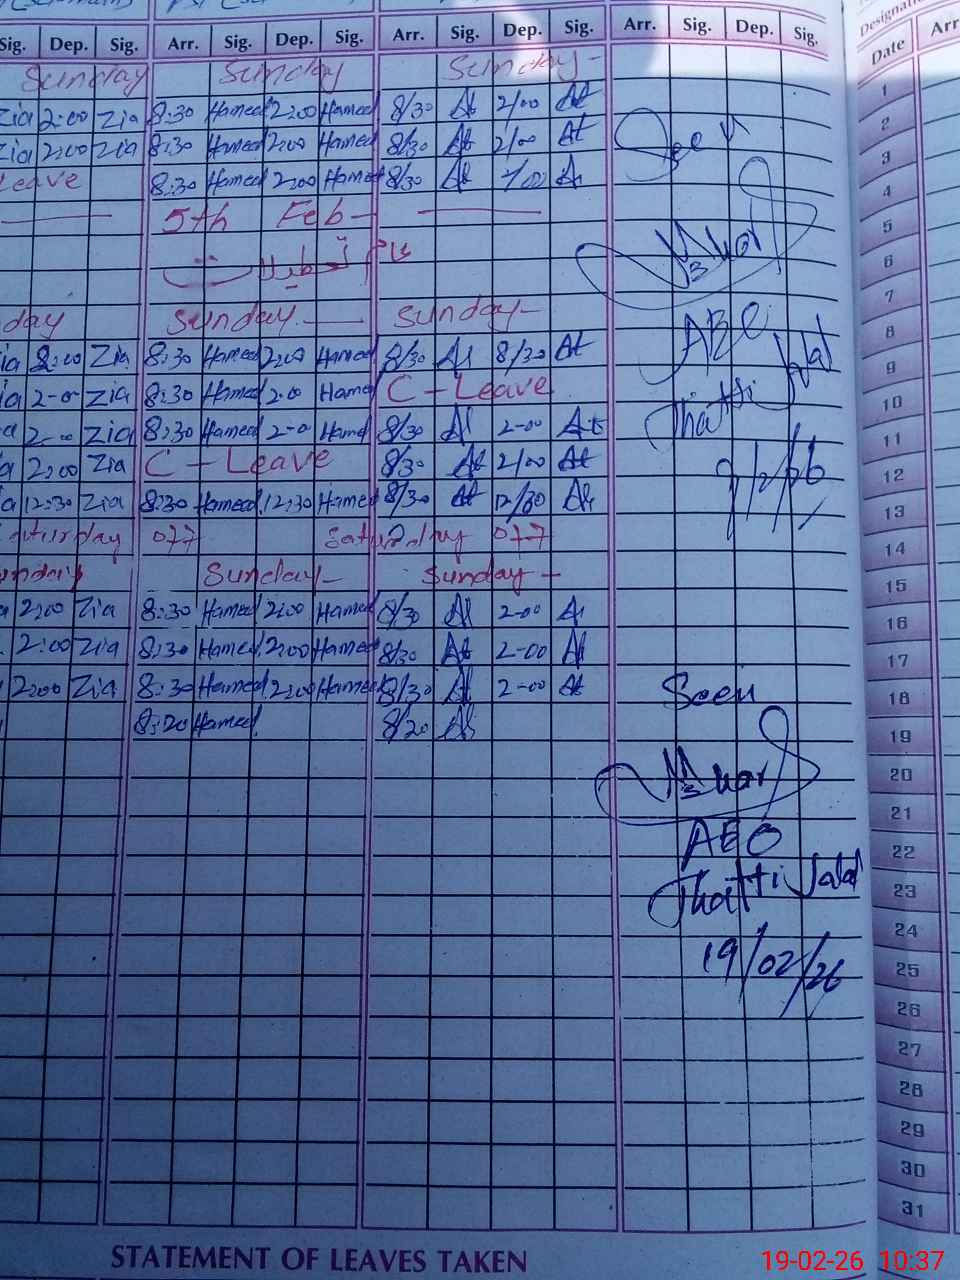 Designati
Sig. Dep. Sig. Arr. Sig. Dep. Sig. Arr. Sig. Dep. Sig. Arr. Sig. Dep. Sig. Date Arr
Sunday Sunday Sunday - 1
Zia 2:00 Zia 8:30 Hameed 2:00 Hameed 8/30 2/00 2
Zia 2:00 Zia 8:30 Hameed 2:00 Hameed 8/30 2/00 3
Leave 8:30 Hameed 2:00 Hameed 8/30 4
5th Feb 5
عام تعطیلات 6
7
day Sunday Sunday - 8
ia 2:00 Zia 8:30 Hameed 2:00 Hameed 8/30 8/30 9
ia 2-00 Zia 8:30 Hameed 2:00 Hamd C - Leave 10
a 2-00 Zia 8:30 Hameed 2-0 Hamd 8/30 2-00 11
a 2:00 Zia C - Leave 8/30 2/00 12
a 12:30 Zia 8:30 Hameed 12:30 Hameed 8/30 12/30 13
aturday off Saturday off 14
unday Sunday - Sunday - 15
a 2:00 Zia 8:30 Hameed 2:00 Hamed 8/30 2-00 16
2:00 Zia 8:30 Hamed 2:00 Hamed 8/30 2-00 17
2:00 Zia 8:30 Hameed 2:00 Hameed 8/30 2-00 18
8:20 Hameed 8/20 19
20
21
22
23
24
25
26
27
28
29
30
31
Thatti Jalal
9/2/26
Seen
AEO
Thatti Jalal
19/02/26
STATEMENT OF LEAVES TAKEN
19-02-26 10:37